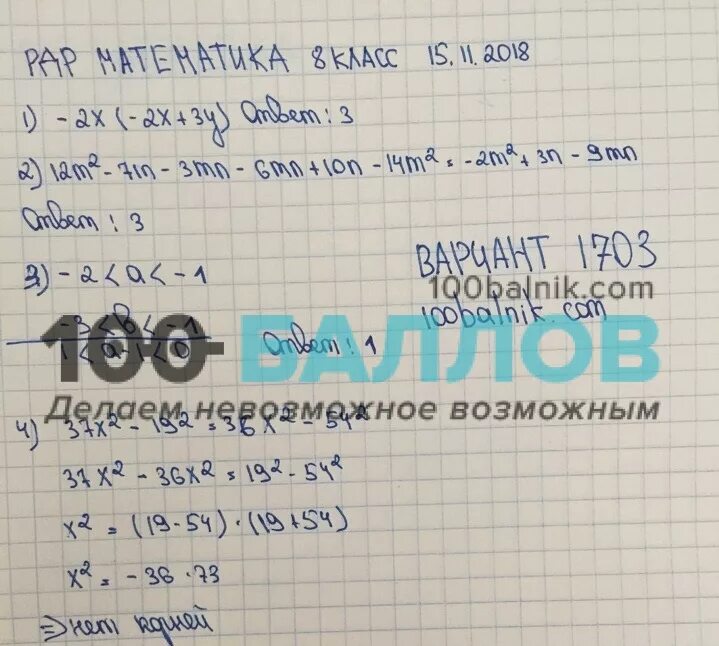 РАР МАТЕМАТИКА 8 КЛАСС 15.11.2018
1) -2x (-2x+3y) Ответ: 3
2) 12m² - 7n - 3mn - 6mn + 10n - 14m² = -2m² + 3n - 9mn
Ответ: 3
3) -2 < a < -1
ВАРИАНТ 1703
100balnik.com
-3 < b < -1
100balnik.com
Ответ: 1
100 БАЛЛОВ
Делаем невозможное возможным
4) 37x² - 19² = 36x² - 54²
37x² - 36x² = 19² - 54²
x² = (19-54) · (19+54)
x² = -36 · 73
⇒ нет корней